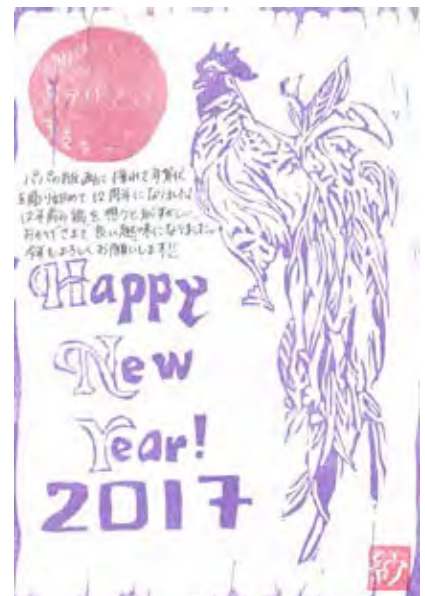 パパの版画に憧れて年賀状
を彫り始めて12周年になりました
12年前の鶏を想うと恥ずかしい
おかげさまで良い趣味になりました。
今年もよろしくお願いします!!
Happy
New
Year!
2017
紗